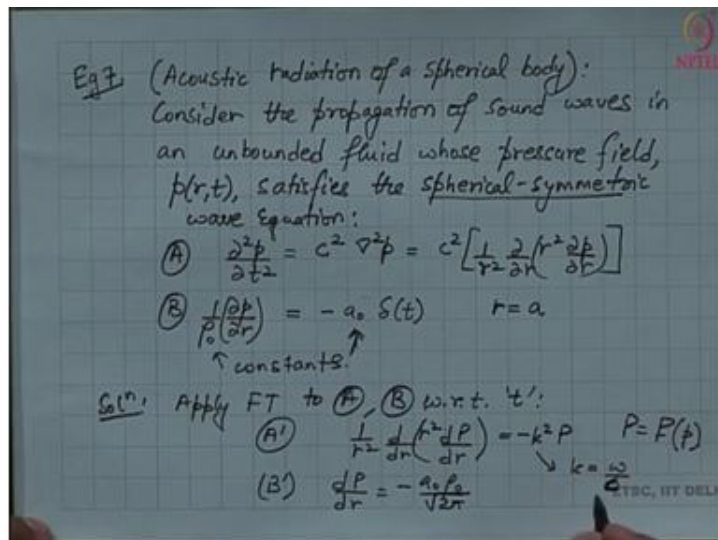 Eg 7 (Acoustic radiation of a spherical body):
Consider the propagation of sound waves in
an unbounded fluid whose pressure field,
p(r,t), satisfies the spherical-symmetric
wave Equation:
Ⓐ ∂²p/∂t² = c² ∇²p = c² [1/r² ∂/∂r (r² ∂p/∂r)]
Ⓑ 1/ρ₀ (∂p/∂r) = - a₀ δ(t) r = a
↑ constants. ↑
Solⁿ: Apply FT to Ⓐ, Ⓑ w.r.t. 't':
Ⓐ' 1/r² d/dr (r² dP/dr) = -k² P P = F(p)
↘ k = ω/c
(B') dP/dr = - a₀ρ₀/√2π
NPTEL
ETSC, IIT DELH